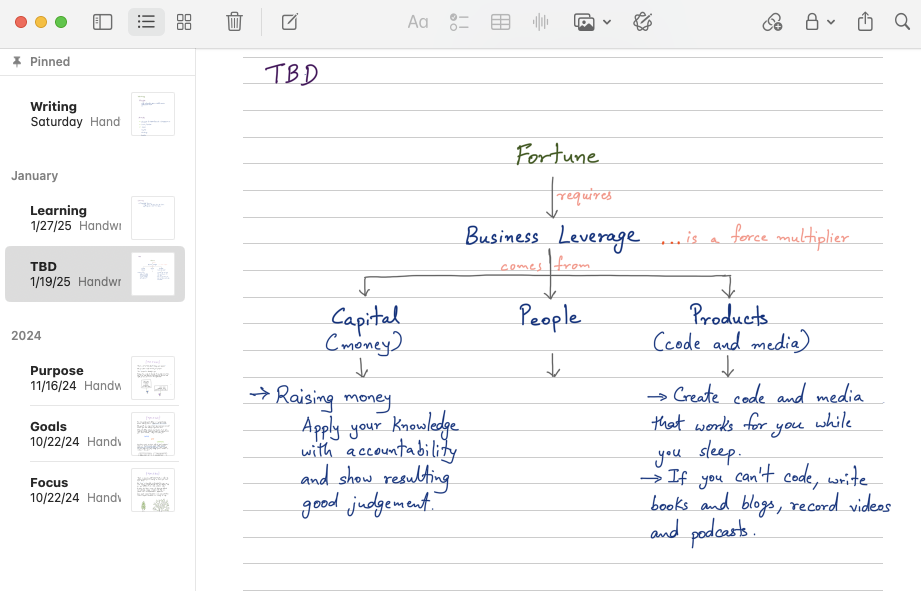 Pinned
Writing
Saturday Hand
January
Learning
1/27/25 Handwr
TBD
1/19/25 Handwr
2024
Purpose
11/16/24 Handw
Goals
10/22/24 Handw
Focus
10/22/24 Handw
Aa
TBD
Fortune
requires
Business Leverage ... is a force multiplier
comes from
Capital People Products
(money) (code and media)
→ Raising money
Apply your knowledge
with accountability
and show resulting
good judgement.
→ Create code and media
that works for you while
you sleep.
→ If you can't code, write
books and blogs, record videos
and podcasts.